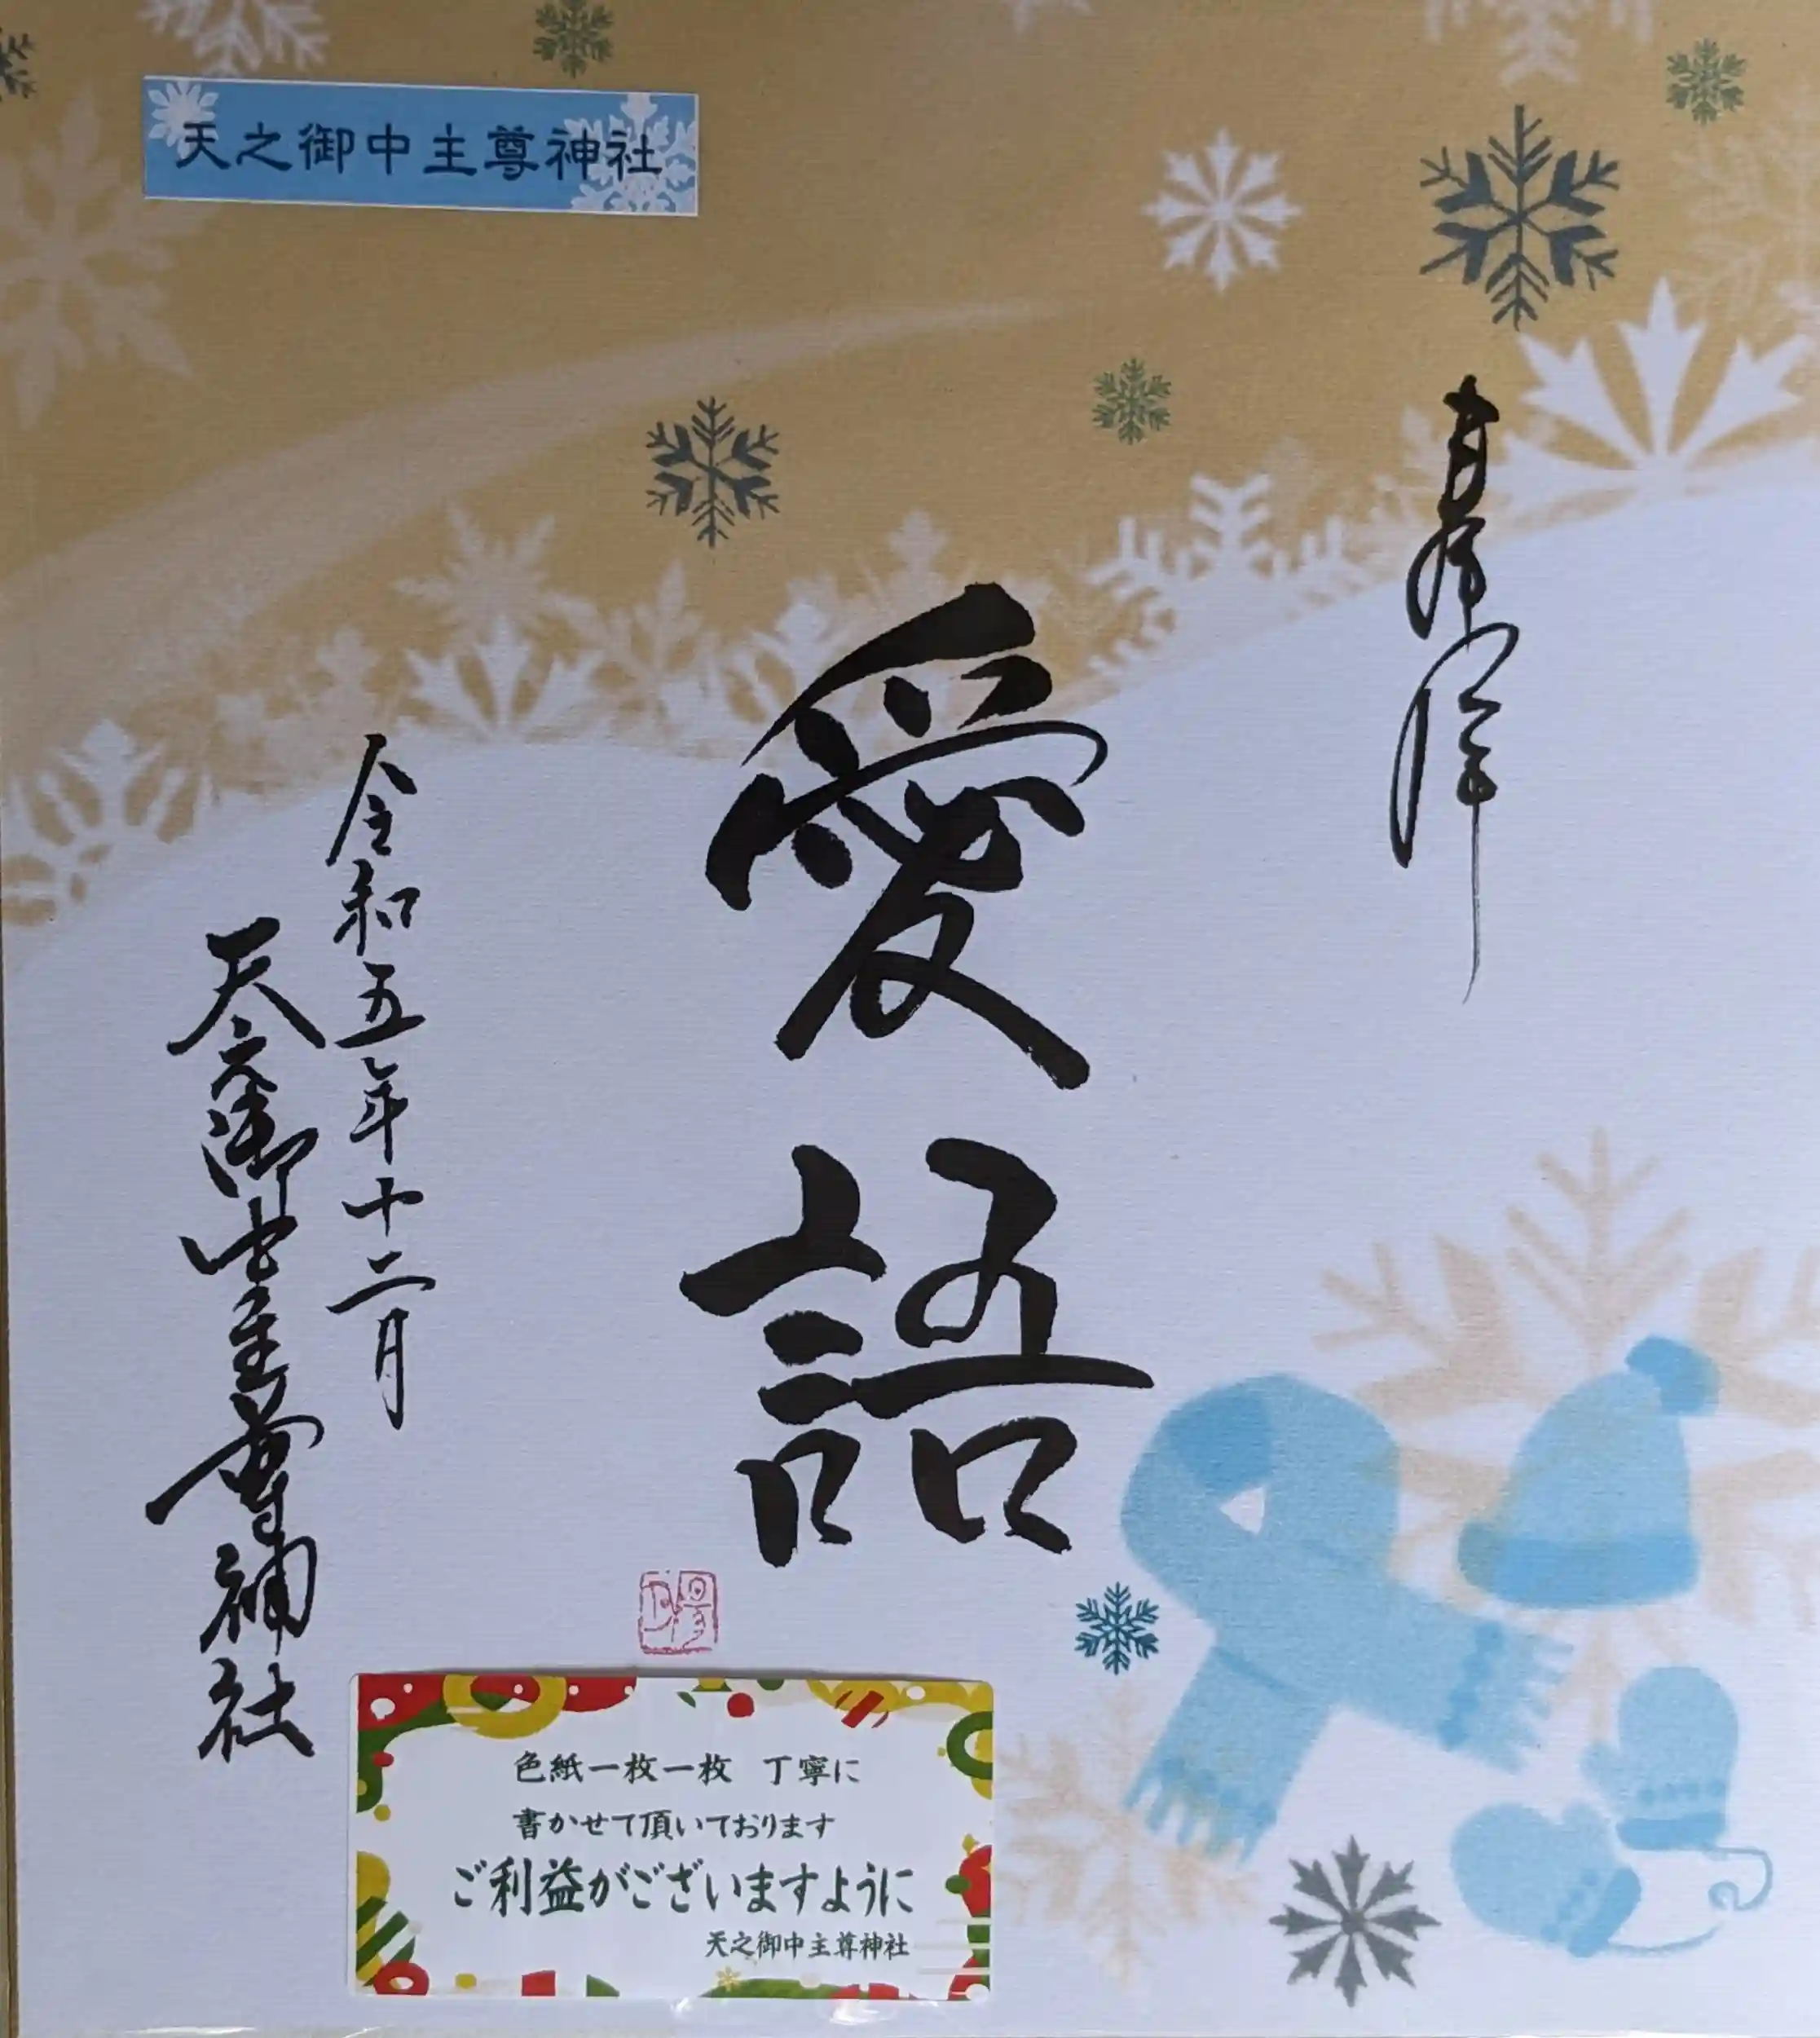 天之御中主尊神社
奉拝
愛語
令和五年十二月
天之御中主尊神社
色紙一枚一枚 丁寧に
書かせて頂いております
ご利益がございますように
天之御中主尊神社